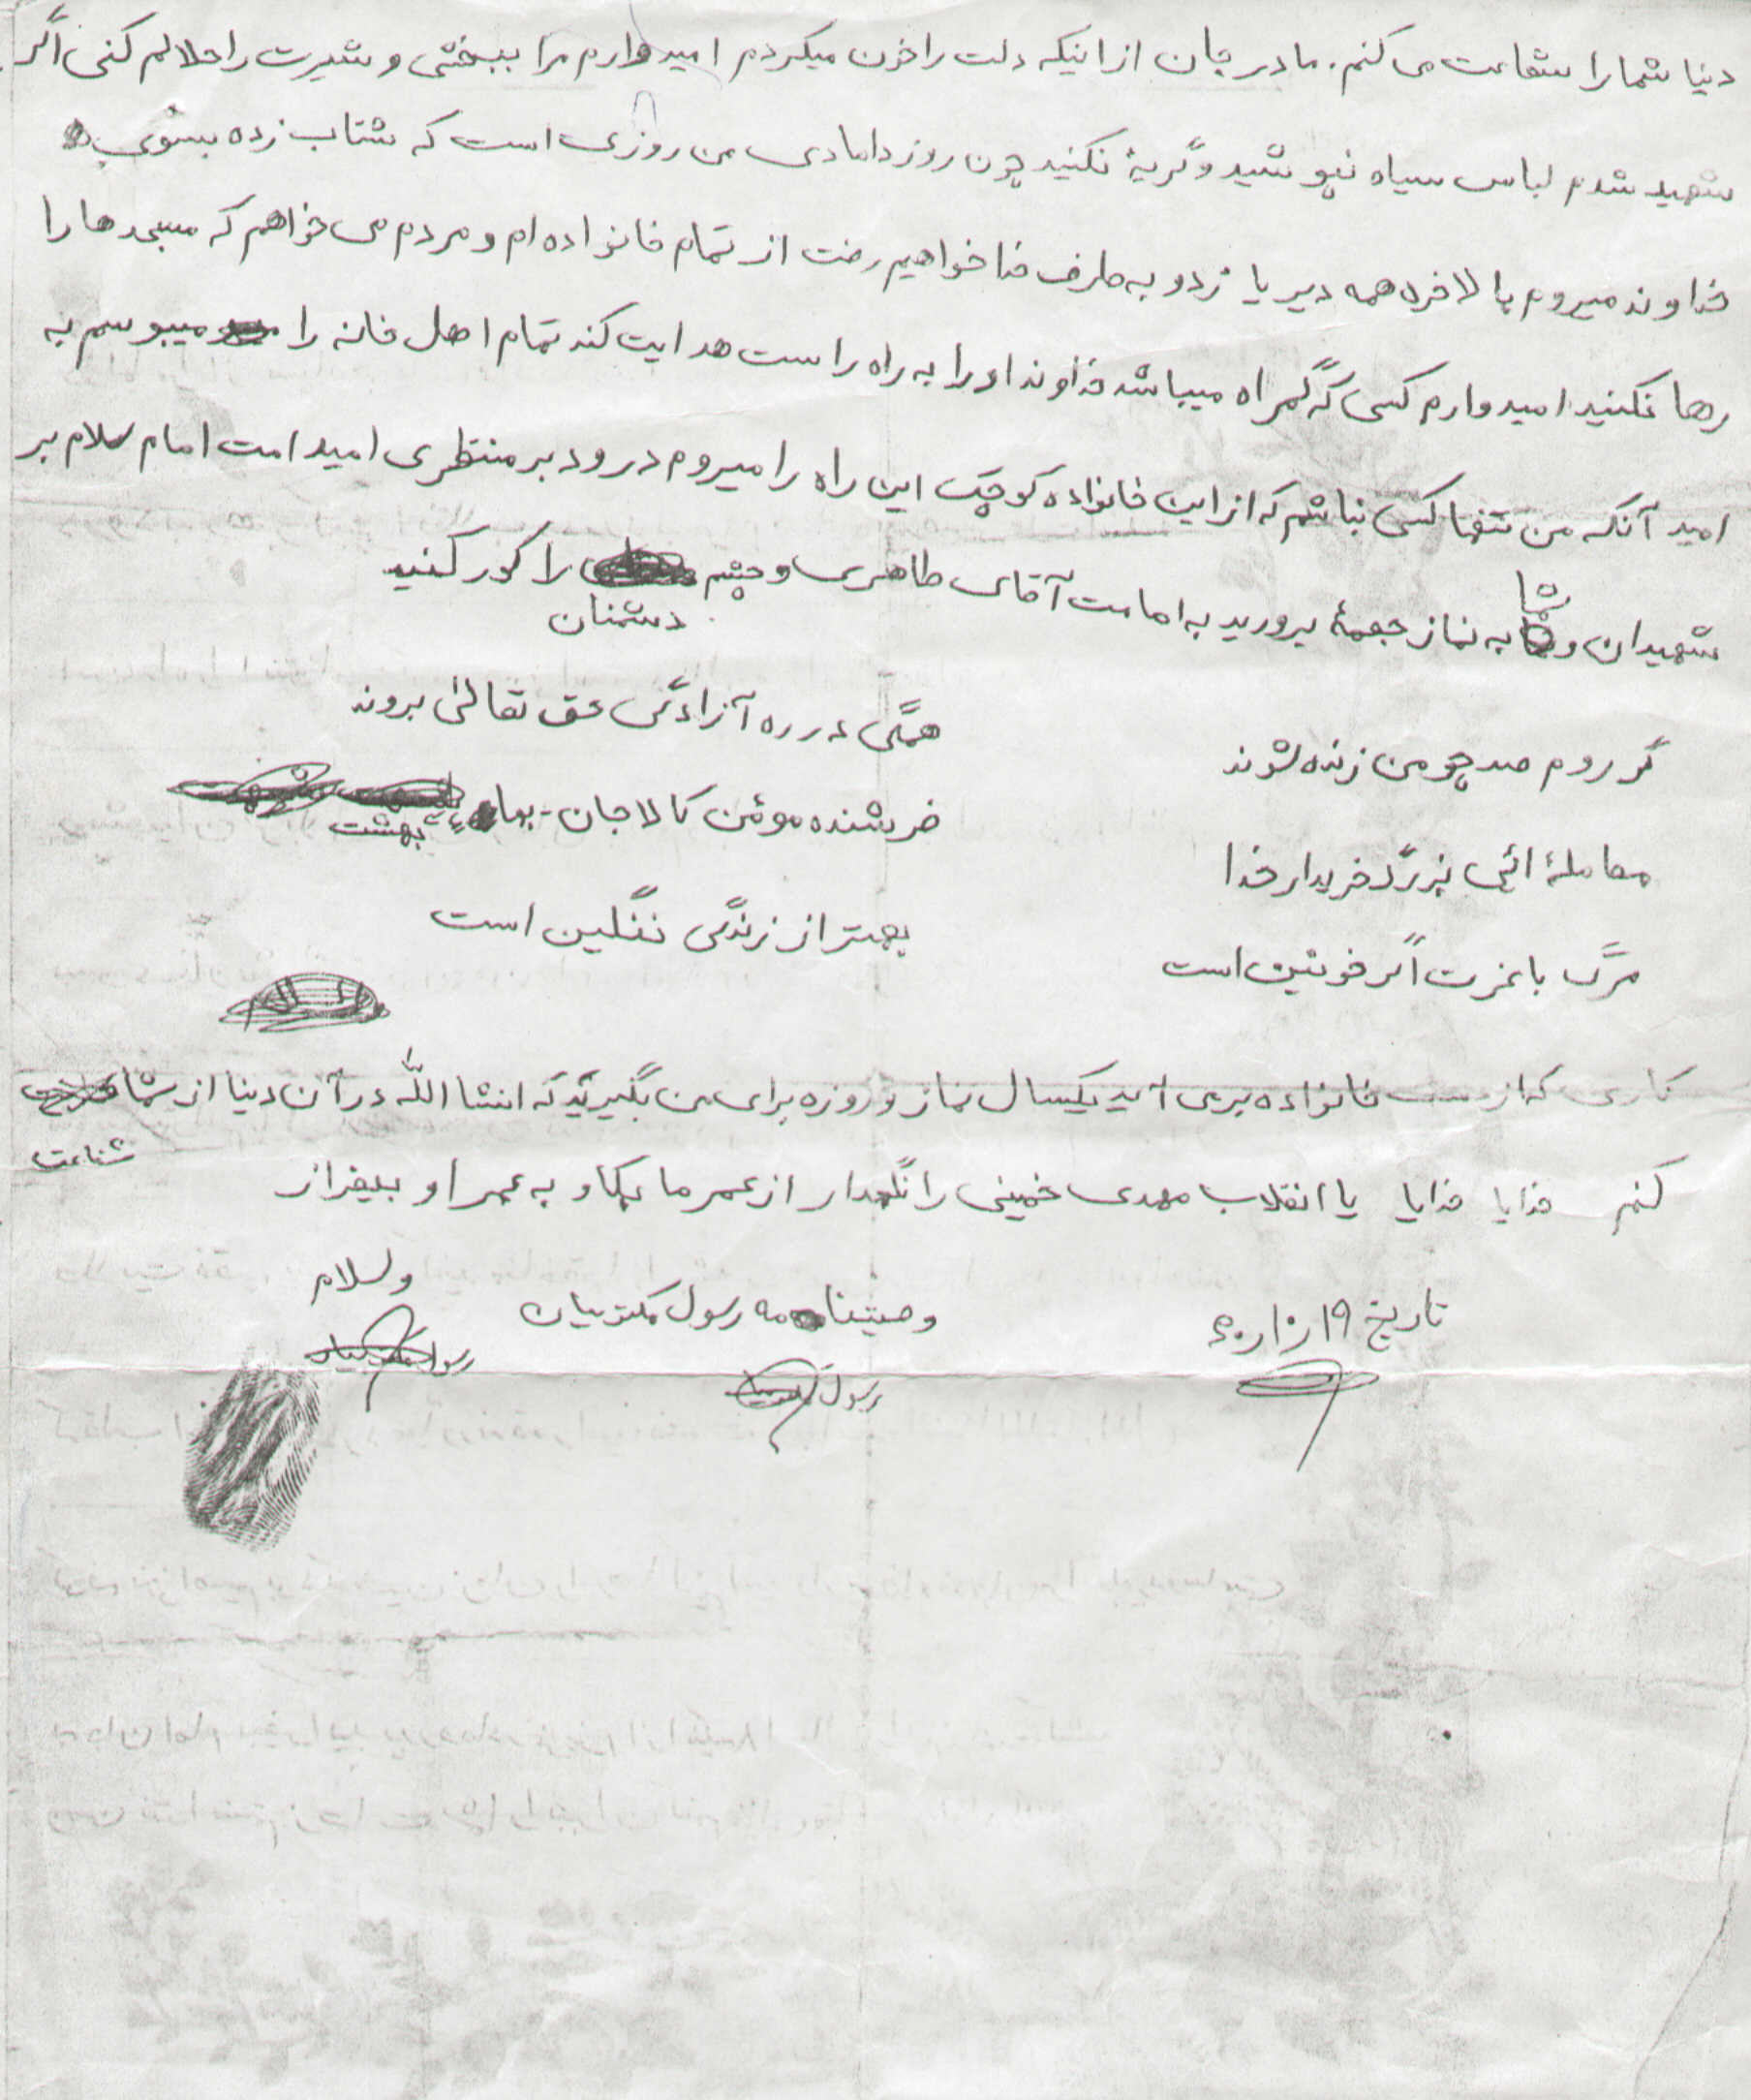 دنیا شما را شفاعت می کنم. مادر جان از اینکه دلت را خون میکردم امیدوارم مرا ببخشی و شیرت را حلالم کنی اگر
شهید شدم لباس سیاه نپوشید و گریهٔ نکنید چون روز دامادی من روزی است که شتاب زده بسوی
خداوند میروم بالاخره همه دیر یا زود به طرف خدا خواهیم رفت از تمام خانواده ام و مردم می خواهم که مسجدها را
رها نکنید امیدوارم کسی که گمراه میباشد خداوند او را به راه راست هدایت کند تمام اهل خانه را میبوسم به
امید آنکه من تنها کسی نباشم که از این خانواده کوچک این راه را میروم درود بر منتظری امید امت امام سلام بر
شهیدان و شما به نماز جمعهٔ بروید به امامت آقای طاهری و چشم دشمنان را کور کنید
گر روم صد چو من زنده شوند همگی در ره آزادگی حق تعالی بروند
معاملهٔ ائی بزرگ خریدار خدا فرشنده موئمن کالا جان - بهاء بهشت
مرگ با عزت اگر خونین است بهتر از زندگی ننگین است
کاری که از دست خانواده برمی آید یکسال نماز و روزه برای من بگیرید که انشا اللّه در آن دنیا از شما شفاعت
کنم خدایا خدایا یا انقلاب مهدی خمینی را نگهدار از عمر ما بکاو به عمر او بیفزاز
ولسلام
تاریخ ۱۹ر۱۰ر۶۰ وصیتنامه رسول مکتوبیان
رسول
رسول